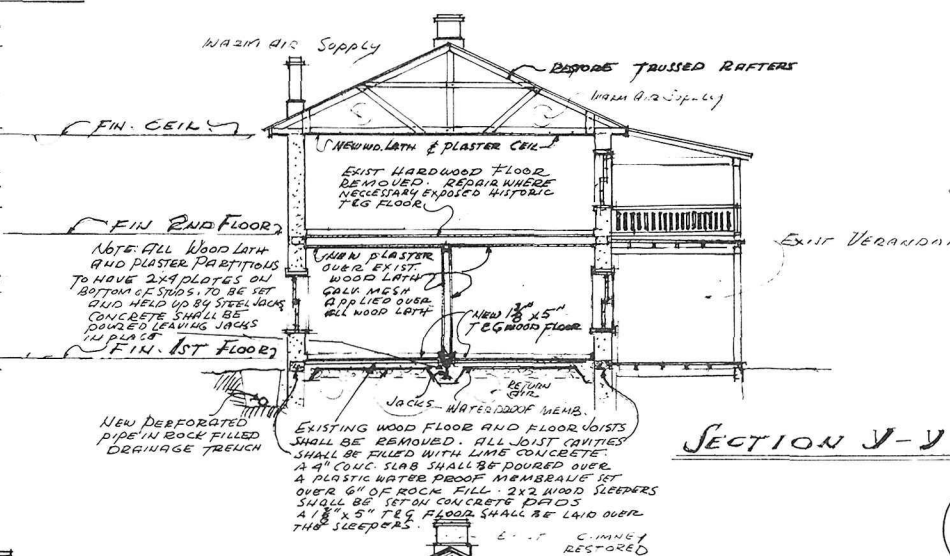 WARM AIR SUPPLY
RESTORE TRUSSED RAFTERS
WARM AIR SUPPLY
FIN. CEIL.
NEW WD. LATH & PLASTER CEIL.
EXIST HARDWOOD FLOOR
REMOVED. REPAIR WHERE
NECCESSARY EXPOSED HISTORIC
T&G FLOOR
FIN 2ND FLOOR
NOTE: ALL WOOD LATH
AND PLASTER PARTITIONS
TO HAVE 2X4 PLATES ON
BOTTOM OF STUDS. TO BE SET
AND HELD UP BY STEEL JACKS
CONCRETE SHALL BE
POURED LEAVING JACKS
IN PLACE
NEW PLASTER
OVER EXIST.
WOOD LATH
GALV. MESH
APPLIED OVER
ALL WOOD LATH
EXIST VERANDA
NEW 1 3/8" X 5"
T&G WOOD FLOOR
FIN. 1ST FLOOR
RETURN
AIR
JACKS
WATERPROOF MEMB.
NEW PERFORATED
PIPE IN ROCK FILLED
DRAINAGE TRENCH
EXISTING WOOD FLOOR AND FLOOR JOISTS
SHALL BE REMOVED. ALL JOIST CAVITIES
SHALL BE FILLED WITH LIME CONCRETE.
A 4" CONC. SLAB SHALL BE POURED OVER
A PLASTIC WATER PROOF MEMBRANE SET
OVER 6" OF ROCK FILL. 2X2 WOOD SLEEPERS
SHALL BE SET ON CONCRETE PADS
A 1 3/8" X 5" T&G FLOOR SHALL BE LAID OVER
THE SLEEPERS.
SECTION Y-Y
CHIMNEY
RESTORED